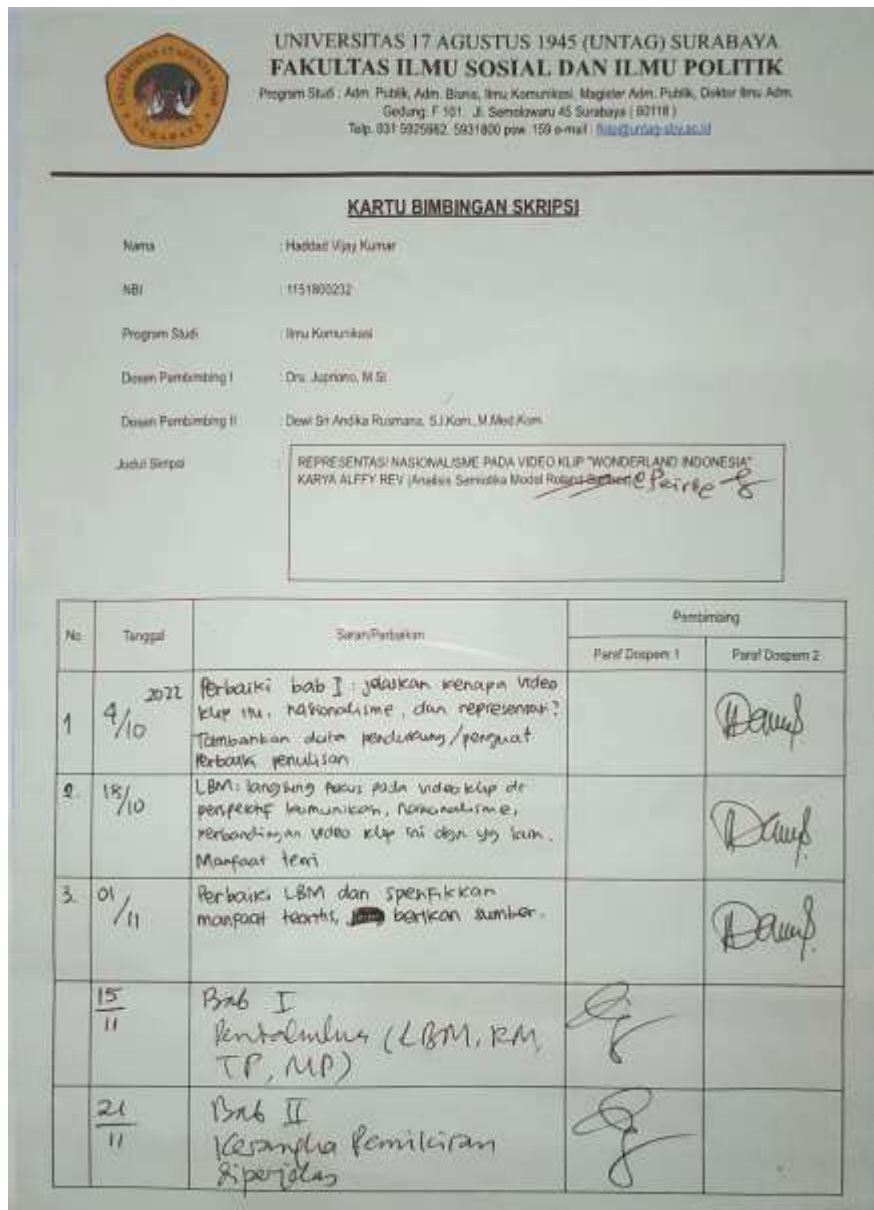 UNIVERSITAS 17 AGUSTUS 1945 (UNTAG) SURABAYA
FAKULTAS ILMU SOSIAL DAN ILMU POLITIK
Program Studi : Adm. Publik, Adm. Bisnis, Ilmu Komunikasi, Magister Adm. Publik, Doktor Ilmu Adm.
Gedung. F 101. Jl. Semolowaru 45 Surabaya ( 60118 )
Telp. 031 5925982, 5931800 psw. 159 e-mail : fisip@untag-sby.ac.id
KARTU BIMBINGAN SKRIPSI
Nama : Haddad Vijay Kumar
NBI : 1151800232
Program Studi : Ilmu Komunikasi
Dosen Pembimbing I : Drs. Jupriono, M.Si
Dosen Pembimbing II : Dewi Sri Andika Rusmana, S.I.Kom., M.Med.Kom.
Judul Skripsi :
REPRESENTASI NASIONALISME PADA VIDEO KLIP "WONDERLAND INDONESIA"
KARYA ALFFY REV (Analisis Semiotika Model Roland Barthes) Peirce
No Tanggal Saran/Perbaikan Pembimbing
Paraf Dospem 1 Paraf Dospem 2
1 4/10 2022 Perbaiki bab I : jelaskan kenapa video
klip itu, nasionalisme, dan representasi?
Tambahkan data pendukung/penguat
Perbaiki penulisan
2. 18/10 LBM: langsung fokus pada video klip dr
perspektif komunikasi, nasionalisme,
perbandingan video klip ini dgn yg lain.
Manfaat teori
3. 01/11 Perbaiki LBM dan spesifikkan
manfaat teoritis, berikan sumber.
15/11 Bab I
Pendahulua (LBM, RM,
TP, MP)
21/11 Bab II
Kerangka Pemikiran
diperjelas